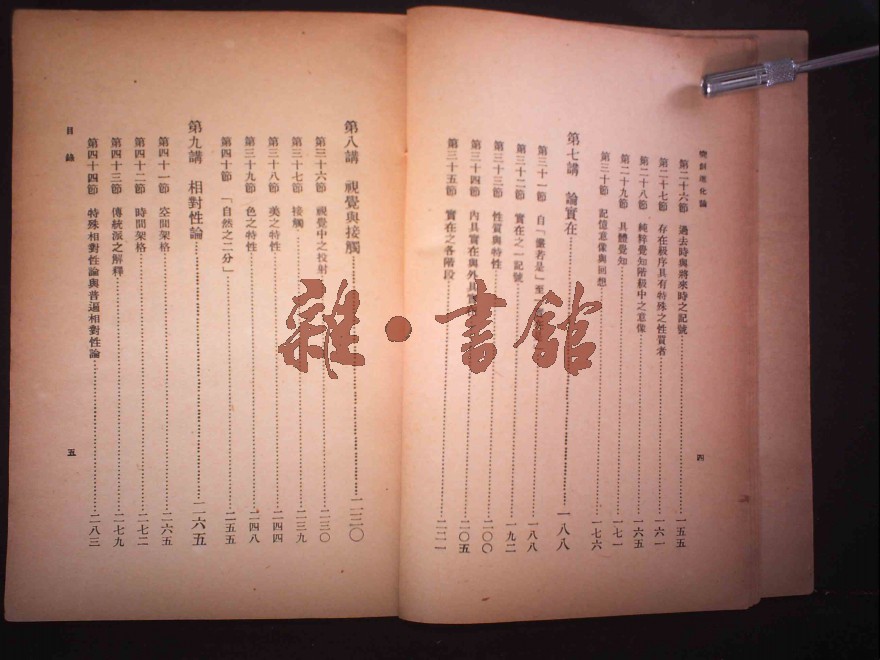 突創進化論
第二十六節 過去時與將來時之記號 一五五
第二十七節 存在級序具有特殊之性質者 一六一
第二十八節 純粹覺知階級中之意像 一六五
第二十九節 具體覺知 一七一
第三十節 記憶意像與回想 一七六
第七講 論實在 一八八
第三十一節 自「儼若是」至 一八八
第三十二節 實在之一記號 一九二
第三十三節 性質與特性 二〇〇
第三十四節 內具實在與外具實在 二〇五
第三十五節 實在之各階段 二二一
四
第八講 視覺與接觸 二三〇
第三十六節 視覺中之投射 二三〇
第三十七節 接觸 二三九
第三十八節 美之特性 二四四
第三十九節 色之特性 二四八
第四十節 「自然之二分」 二五五
第九講 相對性論 二六五
第四十一節 空間架格 二六五
第四十二節 時間架格 二七二
第四十三節 傳統派之解釋 二七九
第四十四節 特殊相對性論與普遍相對性論 二八三
目錄
五
雜·書館